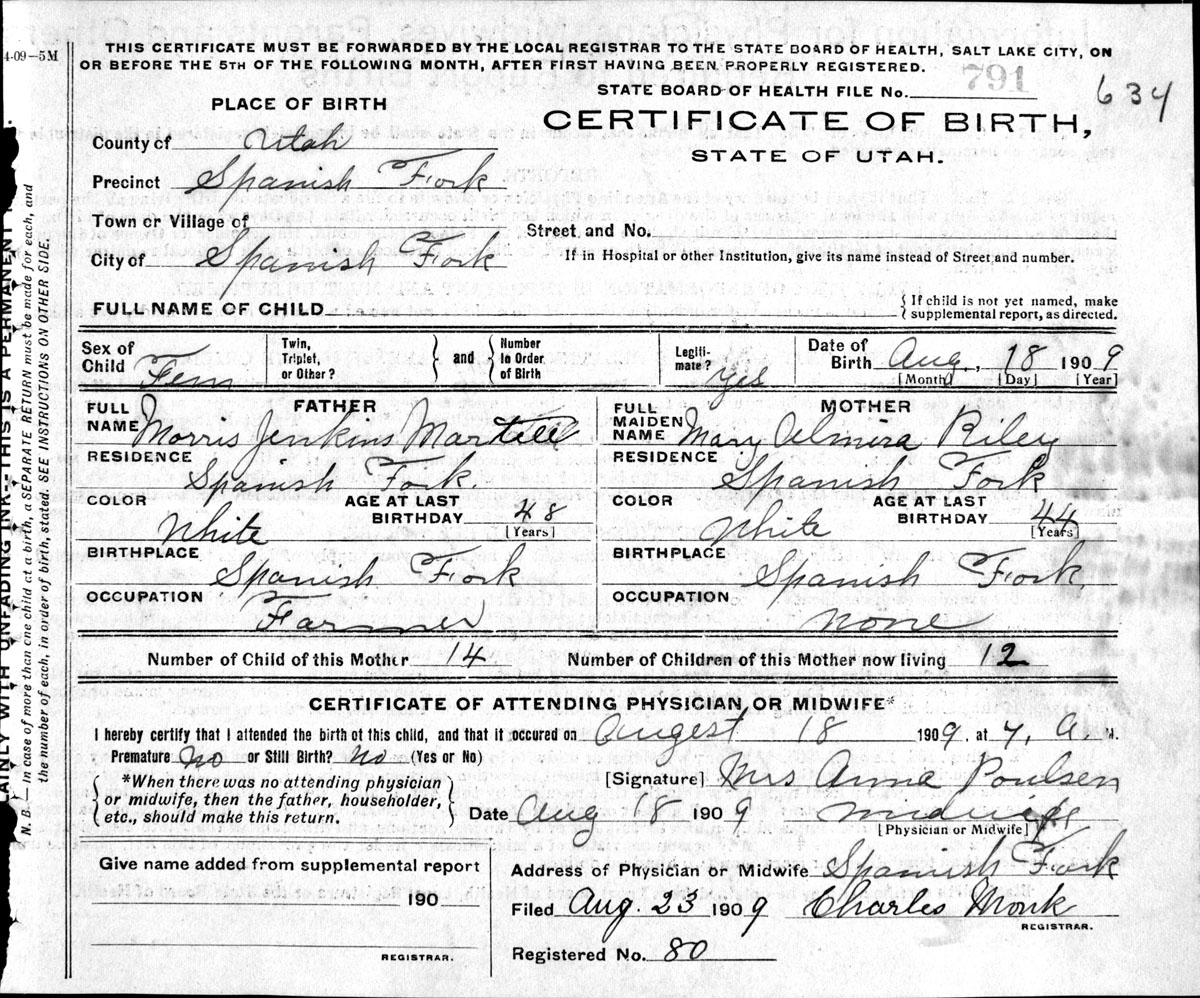 4-09—5M
THIS CERTIFICATE MUST BE FORWARDED BY THE LOCAL REGISTRAR TO THE STATE BOARD OF HEALTH, SALT LAKE CITY, ON
OR BEFORE THE 5TH OF THE FOLLOWING MONTH, AFTER FIRST HAVING BEEN PROPERLY REGISTERED.
STATE BOARD OF HEALTH FILE No. 791
634
PLACE OF BIRTH
CERTIFICATE OF BIRTH,
STATE OF UTAH.
County of Utah
Precinct Spanish Fork
Town or Village of
Street and No.
City of Spanish Fork
If in Hospital or other Institution, give its name instead of Street and number.
FULL NAME OF CHILD
{ If child is not yet named, make
supplemental report, as directed.
Sex of Child Fem
Twin, Triplet, or Other?
and
Number in Order of Birth
Legiti- mate? yes
Date of Birth Aug., 18 1909
[Month] [Day] [Year]
FATHER
FULL NAME Morris Jenkins Martell
RESIDENCE
Spanish Fork.
COLOR White
AGE AT LAST BIRTHDAY 48
[Years]
BIRTHPLACE
Spanish Fork
OCCUPATION
Farmer
MOTHER
FULL MAIDEN NAME Mary Almira Riley
RESIDENCE
Spanish Fork
COLOR White
AGE AT LAST BIRTHDAY 44
[Years]
BIRTHPLACE
Spanish Fork
OCCUPATION
None
Number of Child of this Mother 14
Number of Children of this Mother now living 12
CERTIFICATE OF ATTENDING PHYSICIAN OR MIDWIFE*
I hereby certify that I attended the birth of this child, and that it occured on Augest 18 1909, at 7, A. M.
Premature No or Still Birth? No (Yes or No)
*When there was no attending physician
or midwife, then the father, householder,
etc., should make this return.
[Signature] Mrs Anna Poulsen
Date Aug 18 1909 midwife
[Physician or Midwife]
Give name added from supplemental report
190
REGISTRAR.
Address of Physician or Midwife Spanish Fork
Filed Aug. 23 1909 Charles Monk
REGISTRAR.
Registered No. 80
AINLY WITH UNFADING INK—THIS IS A PERMANENT
N. B.—In case of more than one child at a birth, a SEPARATE RETURN must be made for each, and
the number of each, in order of birth, stated. SEE INSTRUCTIONS ON OTHER SIDE.